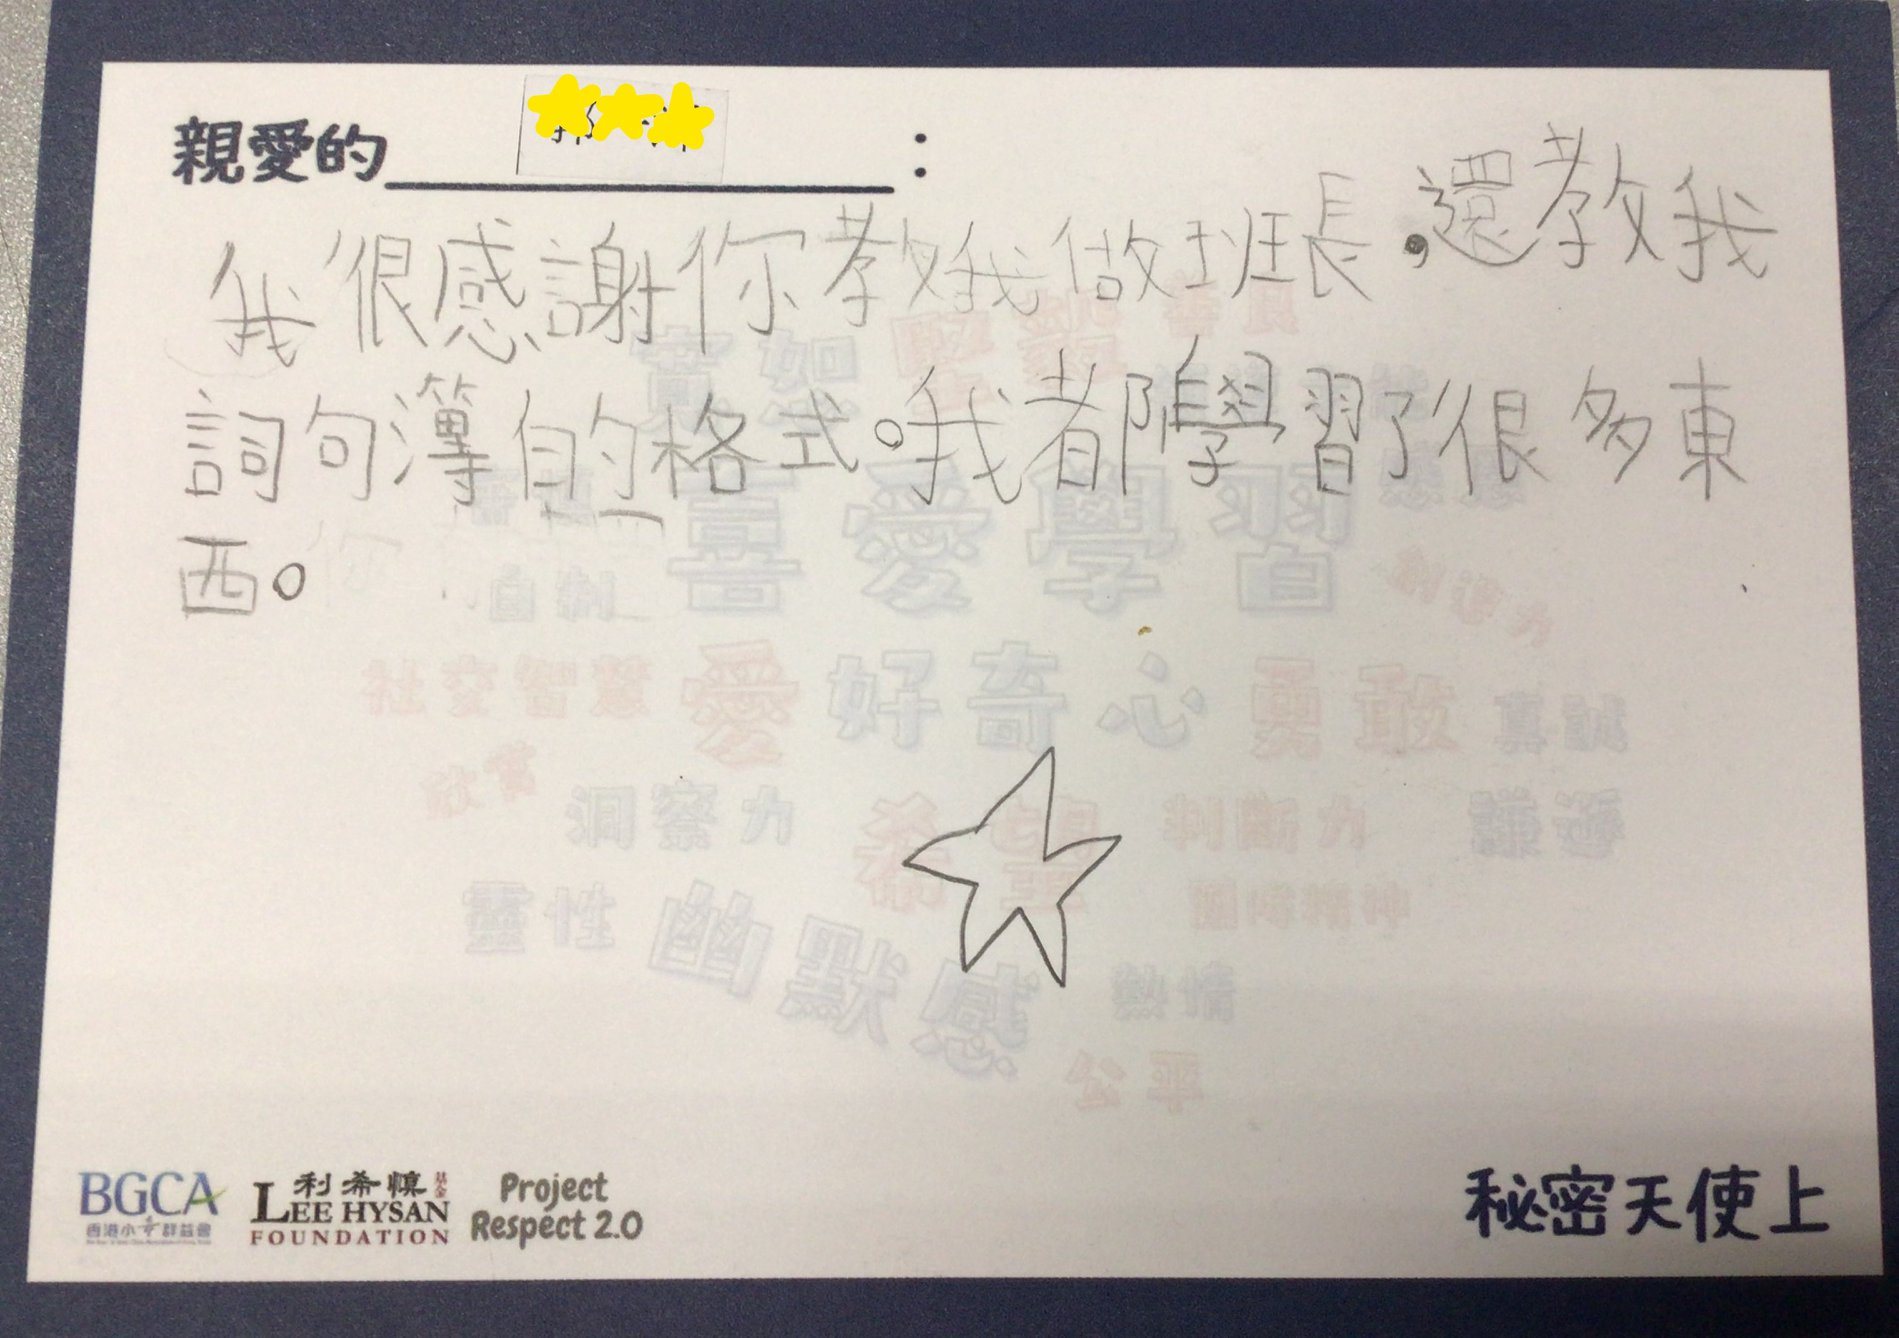 親愛的 :
我很感謝你教我做班長,還教我
詞句簿的格式。我都學習了很多東
西。
喜愛學習
自制
創造力
社交智慧 愛 好奇心 勇敢 真誠
欣賞 洞察力 希望 判斷力 謙遜
靈性 幽默感 團隊精神
熱情
公平
BGCA 利希慎基金 Project
香港小童群益會 LEE HYSAN Respect 2.0
FOUNDATION
秘密天使上